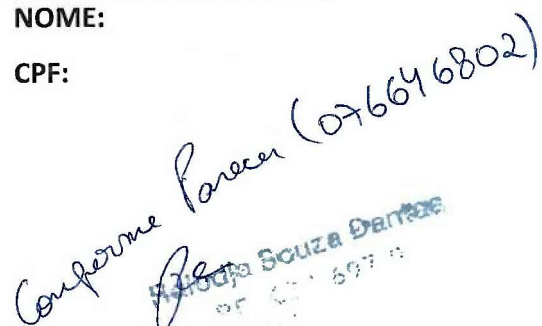 NOME:
CPF:
Conforme Parecer (076646802)
Souza Dantas